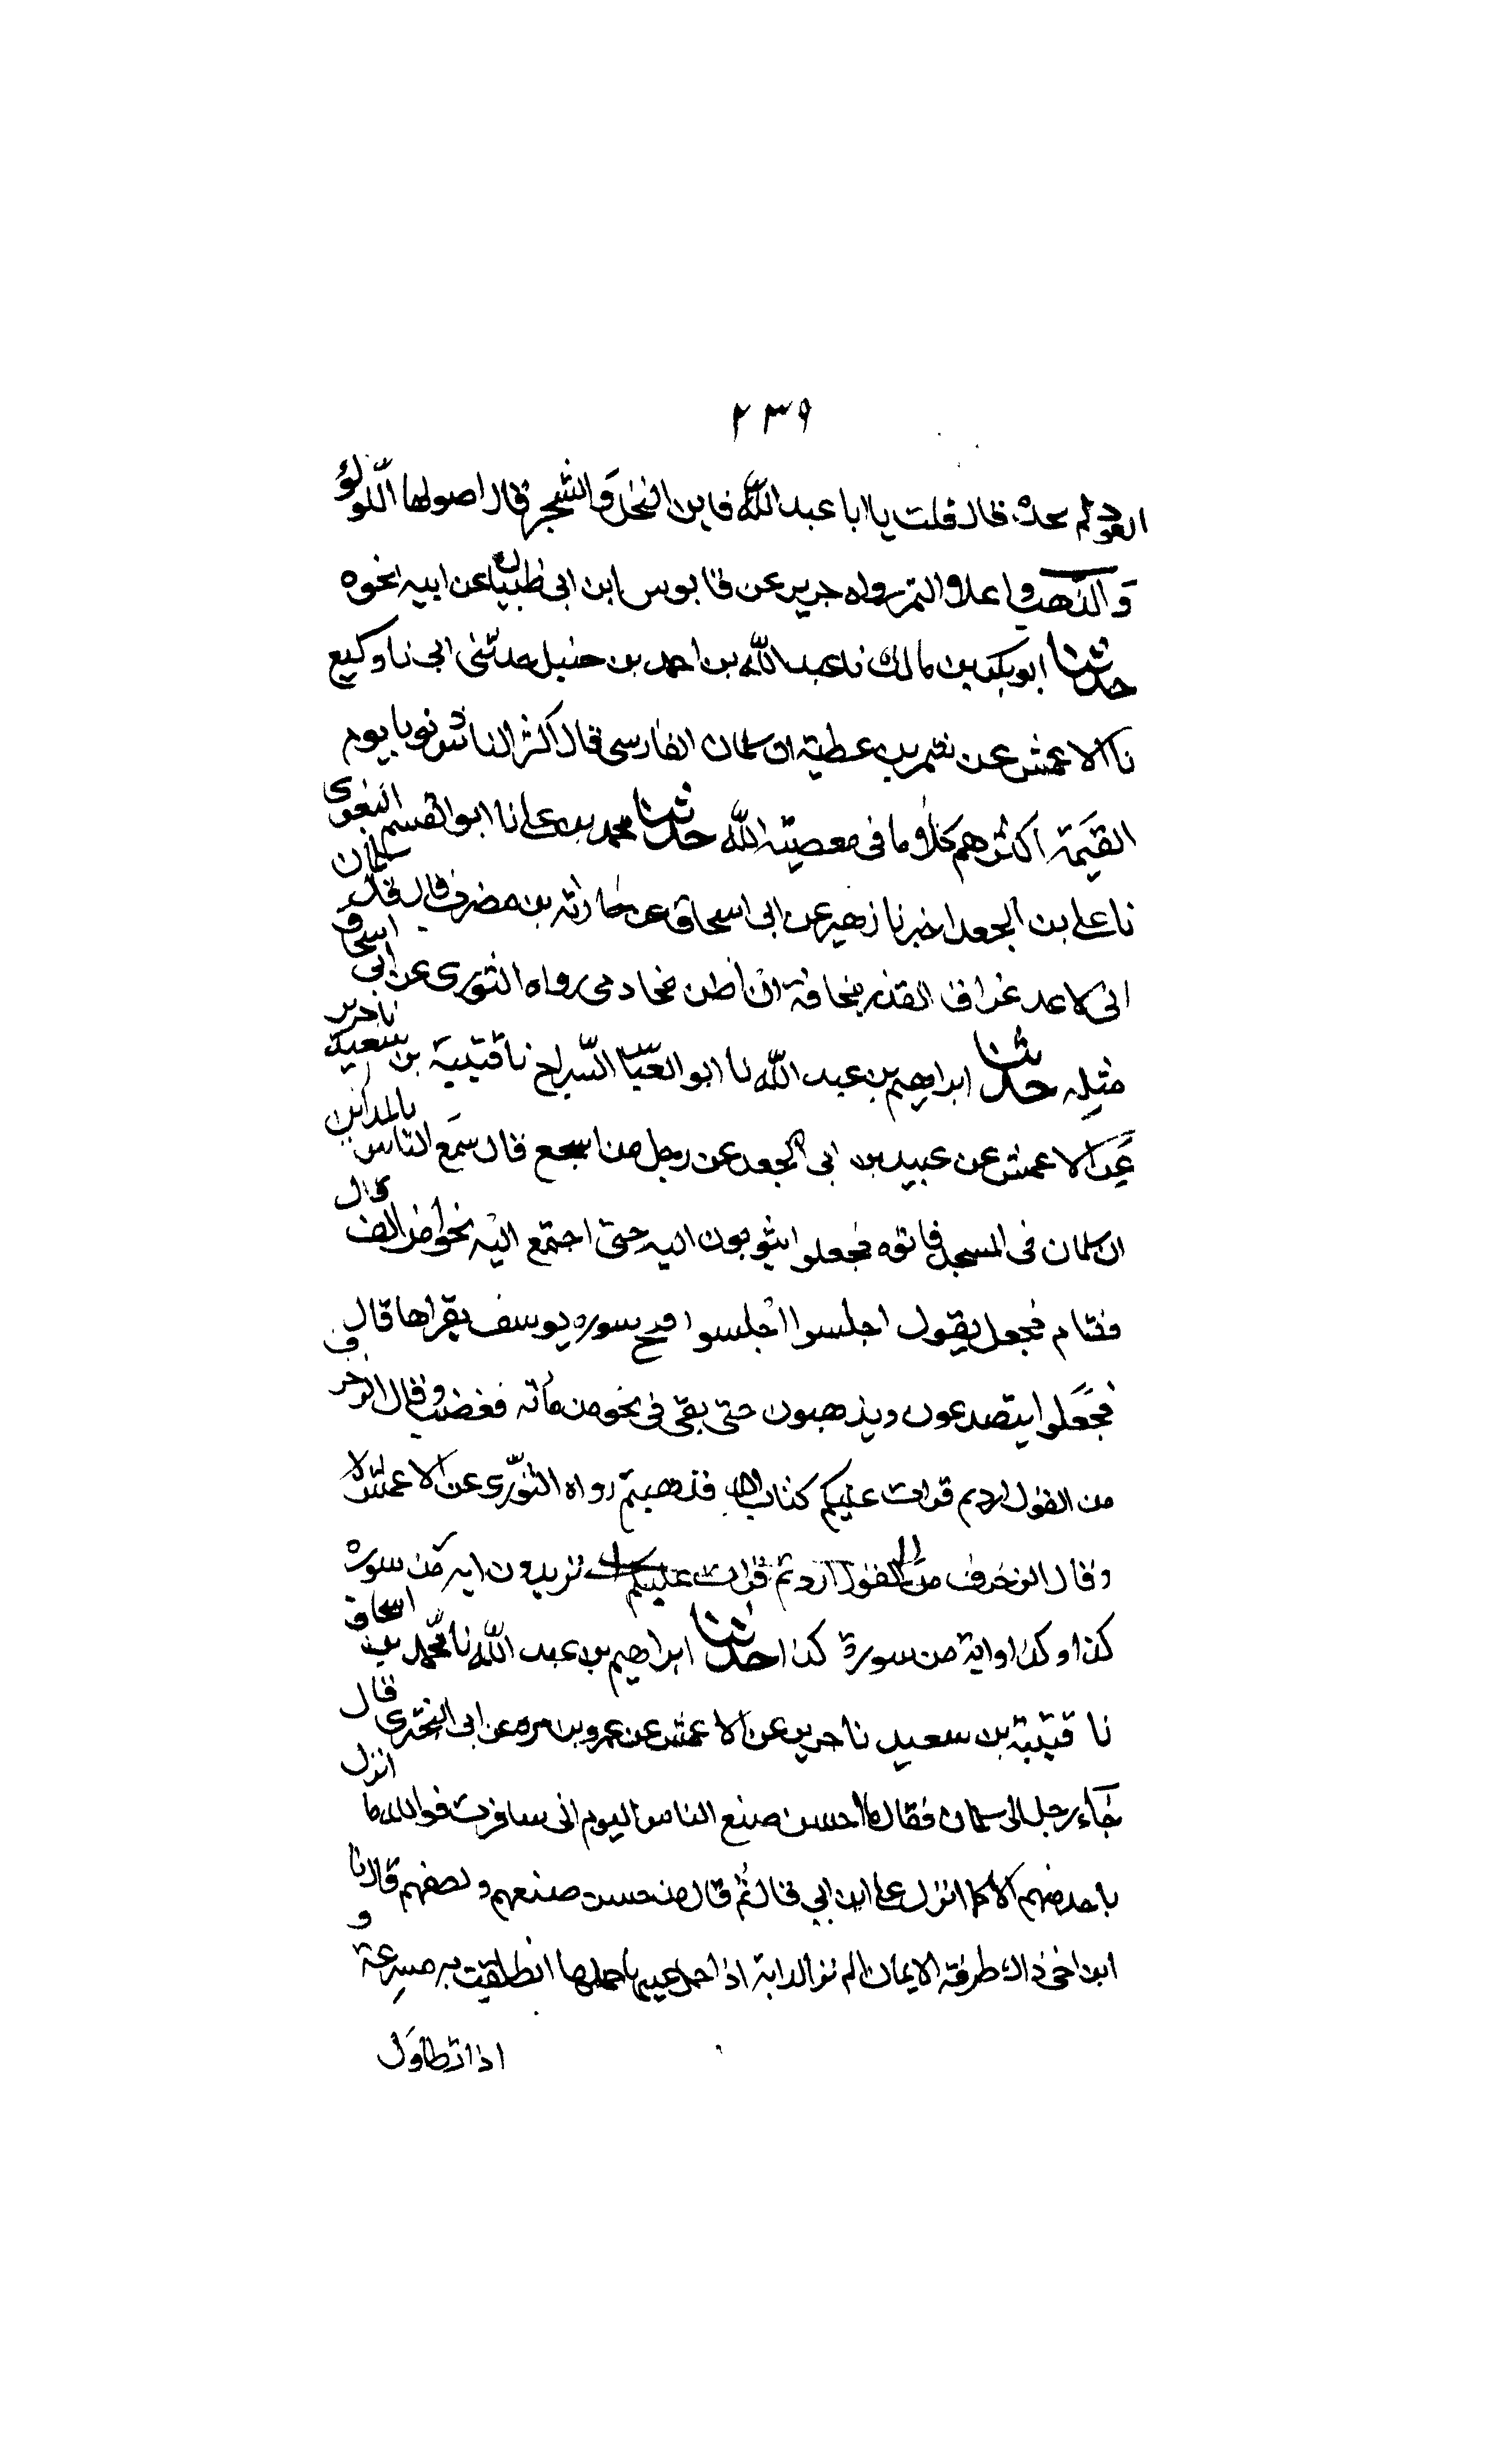 ٢٣٩
العود لم تجده قال قلت يا ابا عبد الله فاين النخل والشجر قال اصولها اللولو
والذهب واعلاه التمر رواه جرير عن قابوس ابن ابى ظبيان عن ابيه نحوه
حدثنا ابو بكر بن مالك نا عبد الله بن احمد بن حنبل حدثنى ابى نا وكيع
نا الاعمش عن شمر بن عطية ان سلمان الفارسى قال اكثر الناس ذنوبا يوم
القيمة اكثرهم كلاما فى معصية الله حدثنا محمد بن على نا ابو القسم البغوى
نا على بن الجعد اخبرنا زهير عن ابى اسحاق عن حارثة بن مضرب قال سلمان
انى لاعد عراق القدر مخافة ان اظن بخادمى رواه الثورى عن ابى اسحاق
مثله حدثنا ابراهيم بن عبد الله نا ابو العباس السراج نا قتيبة بن سعيد نا جرير
عن الاعمش عن عبيد بن ابى الجعد عن رجل من اشجع قال سمع الناس بالمداين
ان سلمان فى المسجد فاتوه فجعلوا يثوبون اليه حتى اجتمع اليه نحوا من الف قال
فقام فجعل يقول اجلسوا اجلسوا فتح سوره يوسف يقراها قال
فجعلوا يتصدعون ويذهبون حتى بقى فى نحو من مائه فغضب وقال الزخرف
من القول اردتم قرات عليكم كتاب الله فذهبتم رواه الثورى عن الاعمش
وقال الزخرف من القول اردتم قرات عليكم تريدون ايه من سوره
كذا وكذا واية من سورة كذا حدثنا ابراهيم بن عبد الله نا محمد بن اسحاق
نا قتيبة بن سعيد نا جرير عن الاعمش عن عمرو بن مره عن ابى البخترى قال
جاء رجل الى سلمان فقال ما احسن صنع الناس اليوم انى سافرت فوالله ما انزل
باحد منهم الا كما انزل على ابن ابي قال ثم قال من حسن صنعهم ولطفهم قال يا
ابن اخى ذاك طرفة الايمان الم تر الدابة اذا حمل عليها حملها انطلقت به مسرعة و
اذا تطاول